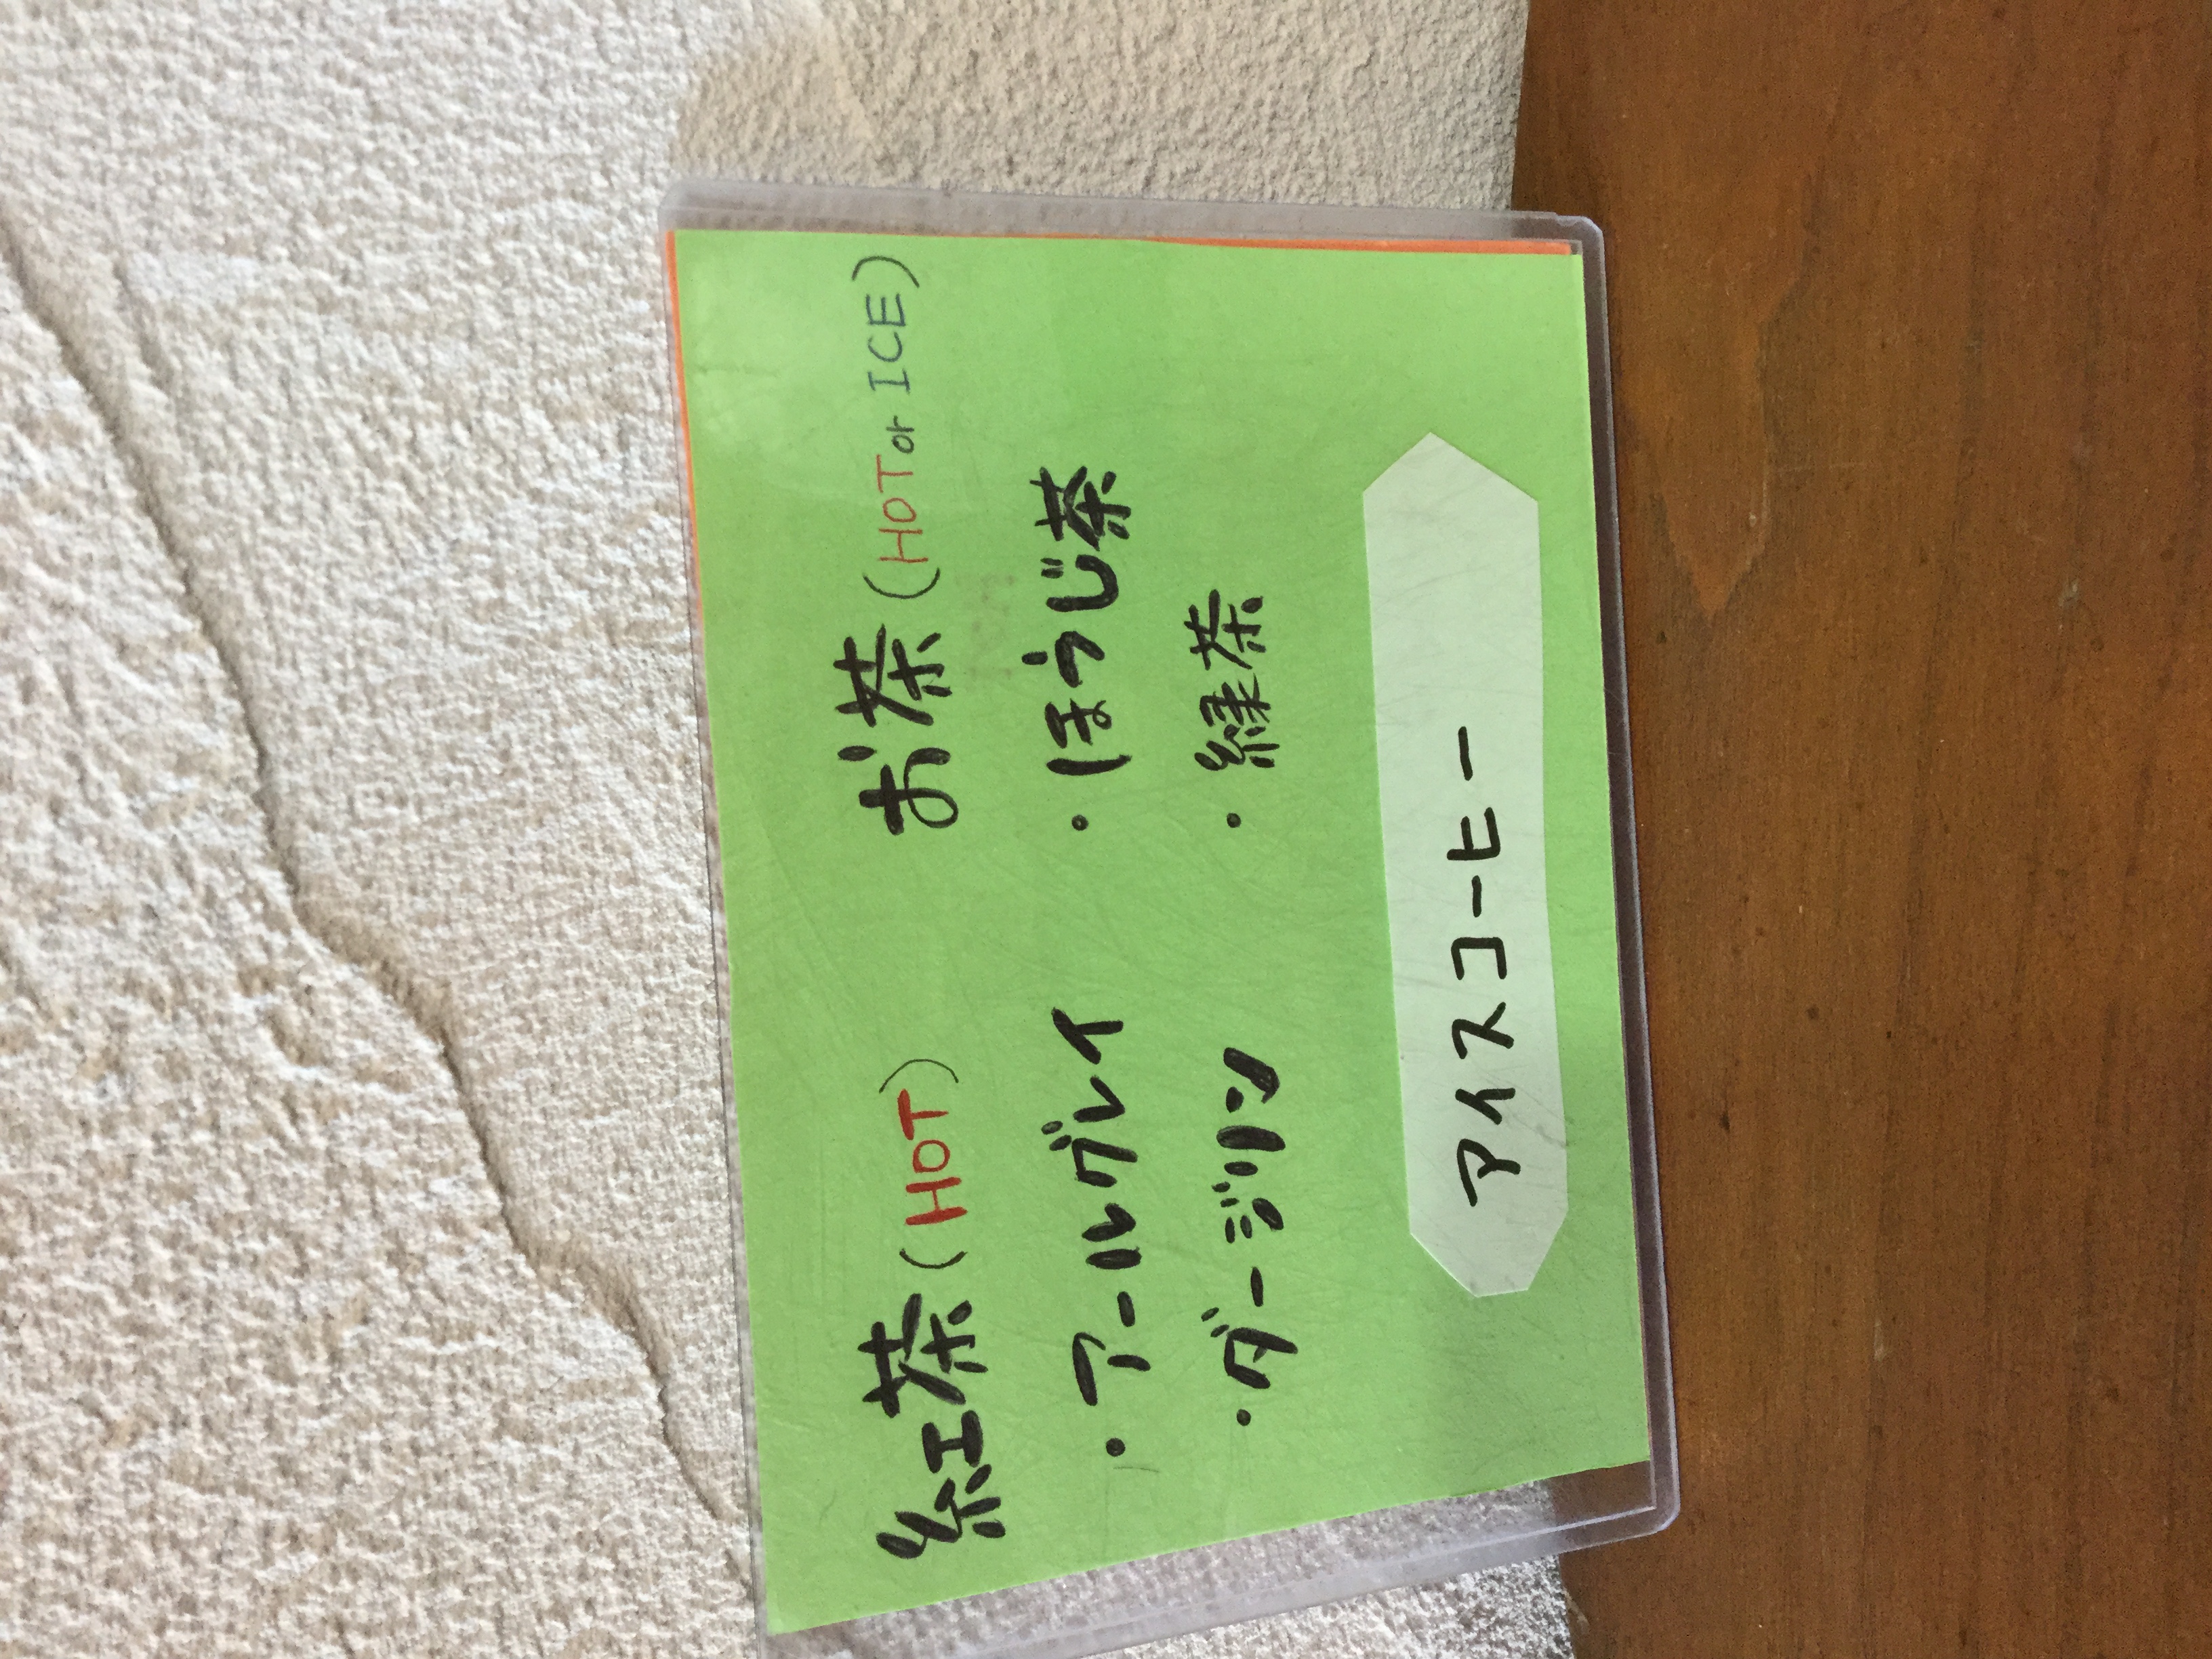 紅茶(HOT)
・アールグレイ
・ダージリン
お茶(HOT or ICE)
・ほうじ茶
・緑茶
アイスコーヒー